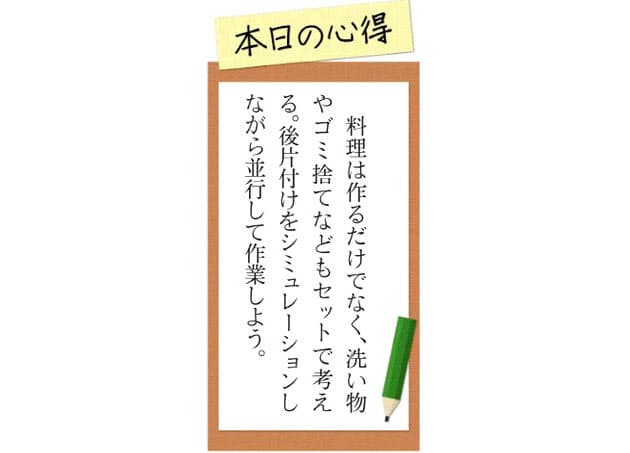 本日の心得
料理は作るだけでなく、洗い物
やゴミ捨てなどもセットで考え
る。後片付けをシミュレーションし
ながら並行して作業しよう。